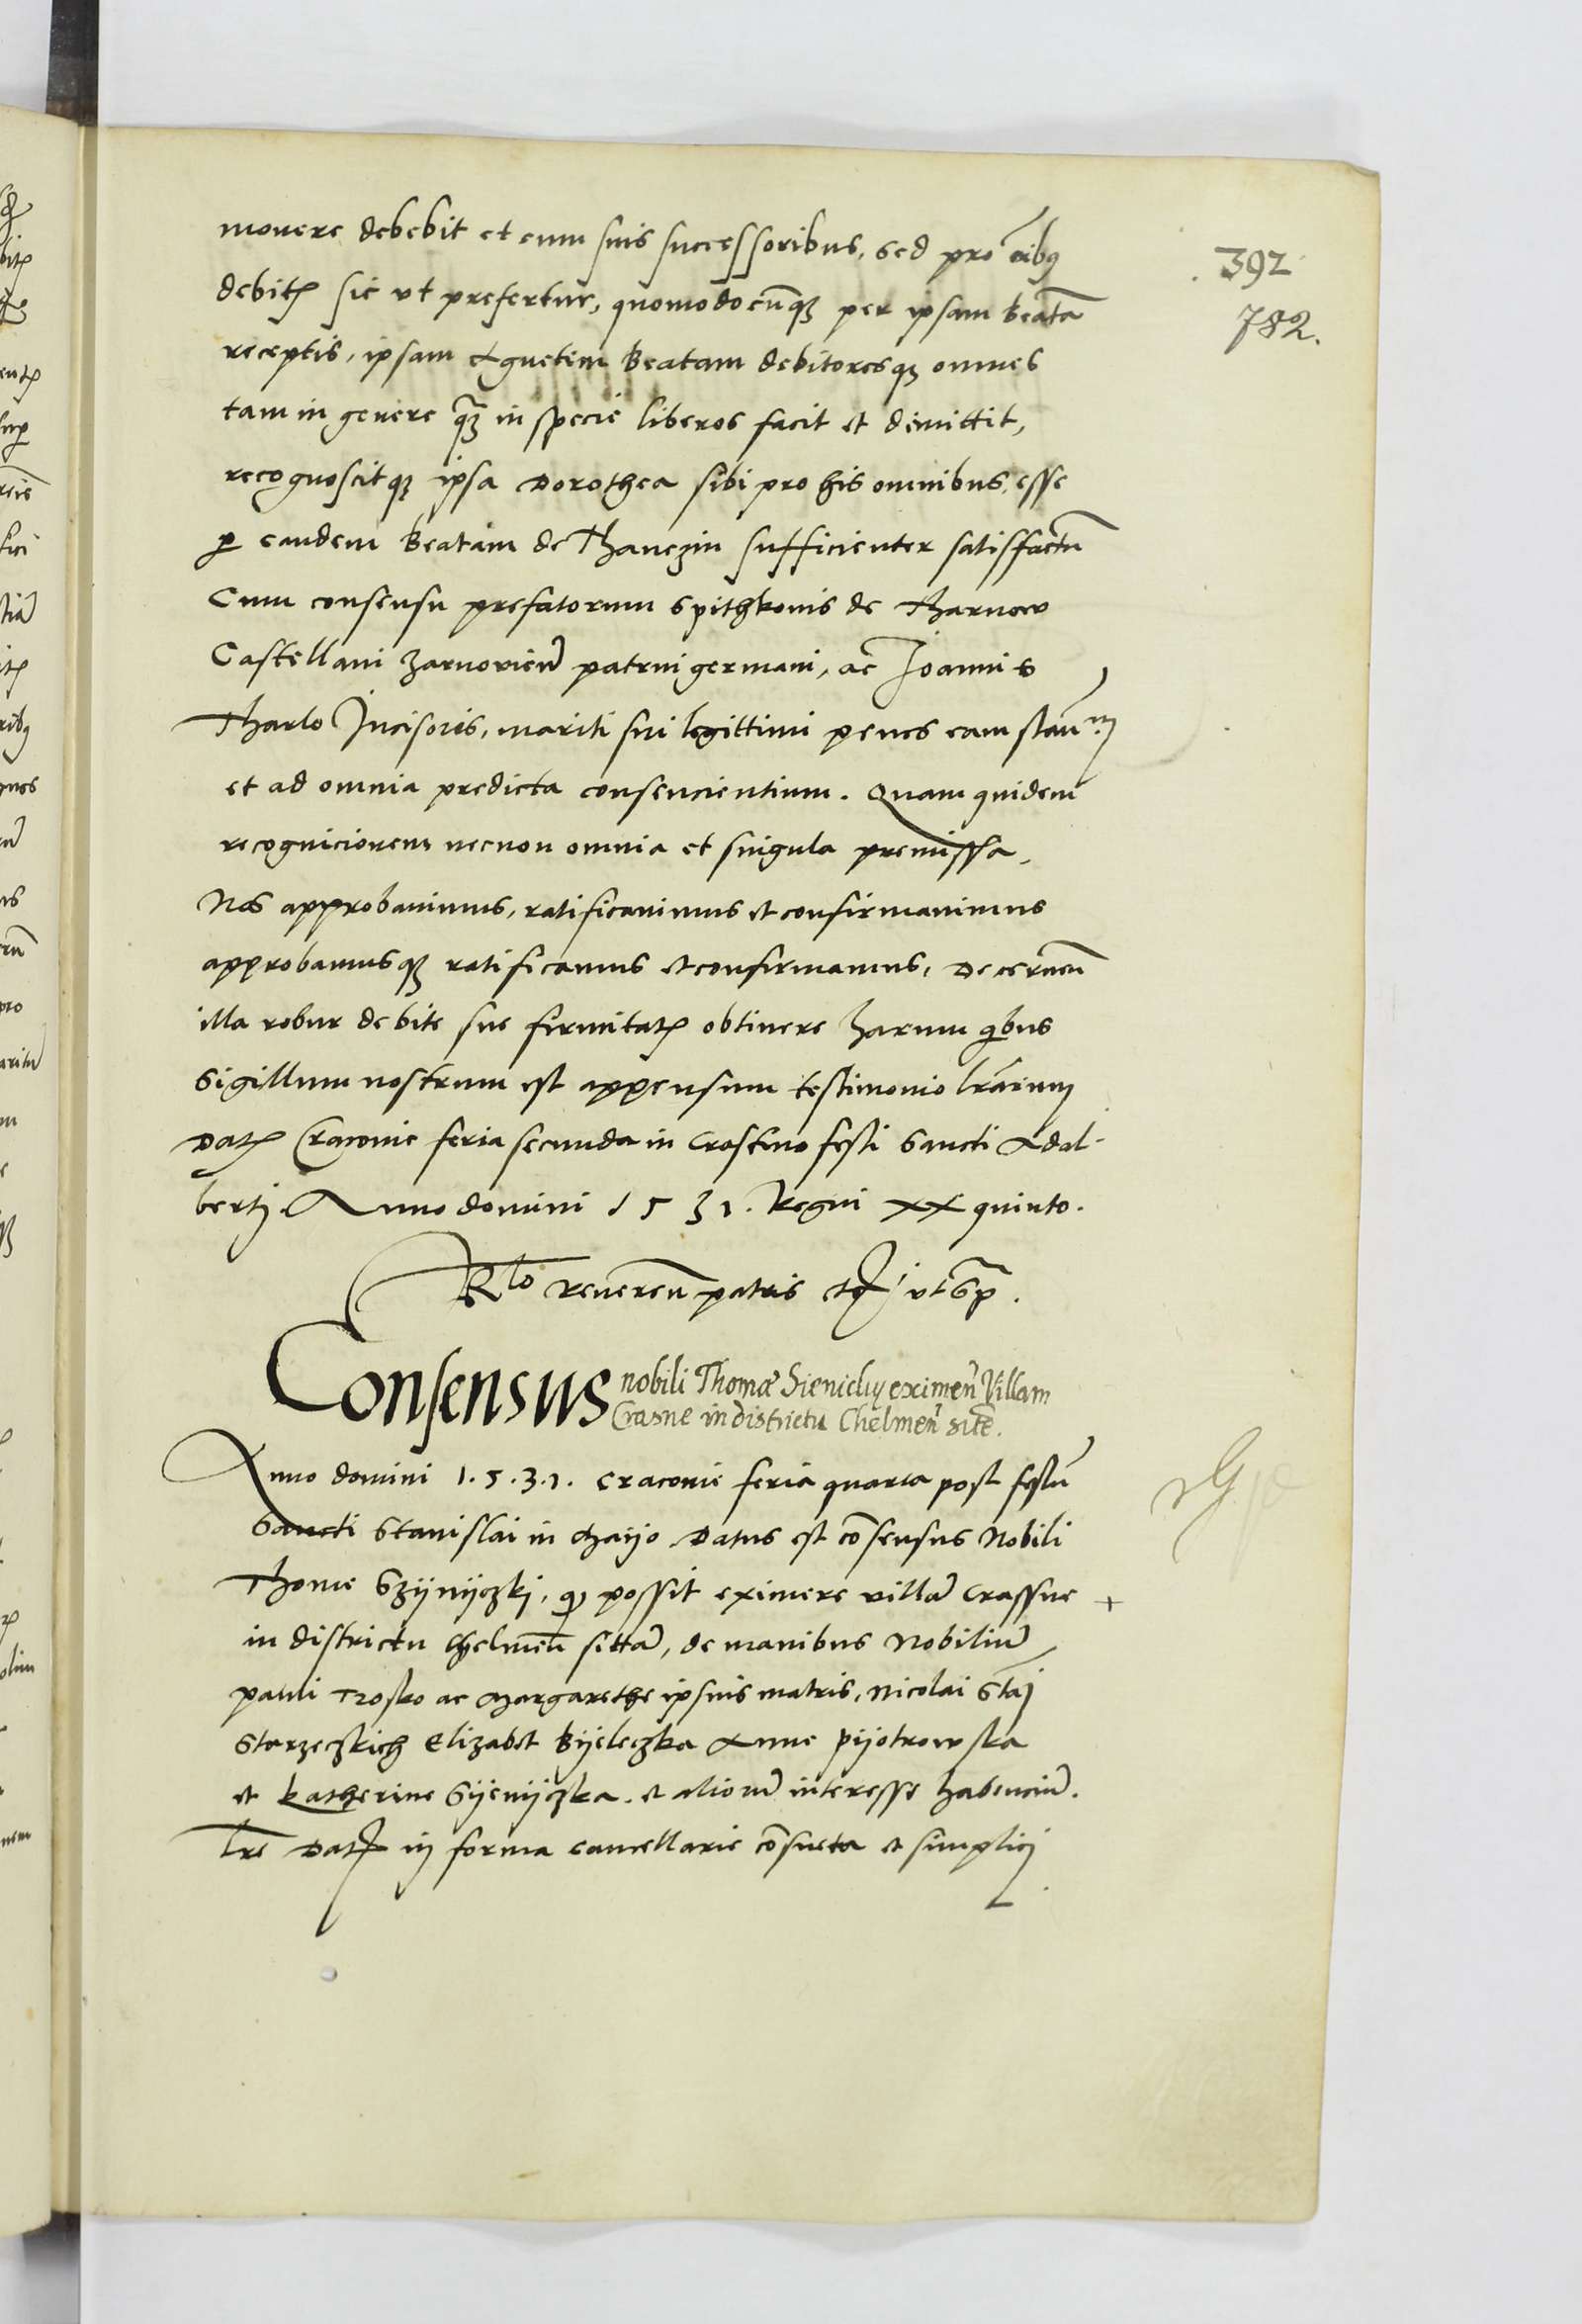 movere debebit et cum suis successoribus, sed pro oībus
debitis sic ut prefertur, quomodocunq3 per ipsam Beatā
receptis, ipsam Agnetem Beatam debitoresq3 omnes
tam in genere q̃3 in specie liberos facit et dimittit,
recognoscitq3 ipsa Dorothea sibi pro his omnibus esse
p eandem Beatam de Thanczin sufficienter satisfactū
Cum consensu prefatorum Spithkonis de Tharnow
Castellani Zarnovieñ patrui germani, ac Joannis
392
782.
Tharlo Incisoris, mariti sui legittimi penes eam stanm
et ad omnia predicta consenciencium. Quam quidem
recognicionem necnon omnia et singula premissa,
Nos approbavimus, ratificavimus et confirmavimus
approbamusq3 ratificamus et confirmamus, Decerneñ
illa robur debite sue firmitatis obtinere harum qibus
Sigillum nostrum est appensum testimonio lrārum
Datis Craconie feria secunda in Crastino festi Sancti Adal-
berti. Anno domini 1531. Regni XX quinto.
Rlo Revereñ patris etc ut Sp̃.
Consensus nobili Thomæ Sienicky eximeñ Villam
Crasne in districtu Chelmeñ sitē.
Anno domini 1.5.3.1. Craconie feria quarta post festū
Sancti Stanislai in Maijo Datus est cōsensus Nobili
Thome Szijnijczkj, q̃ possit eximere villā Crassne +
in districtu Chelmeñ sittā, de manibus Nobiliū
Pauli Trosko ac Margarethe ipsius matris, Nicolai Stāj
Starzeczkich Elizabet Bijeleczka Anne Pijotrowska
et Katherine Sijenijczka. et aliorū interesse habenciū.
Lr̃e Datis in forma cancellarie cōsueta et simplicj